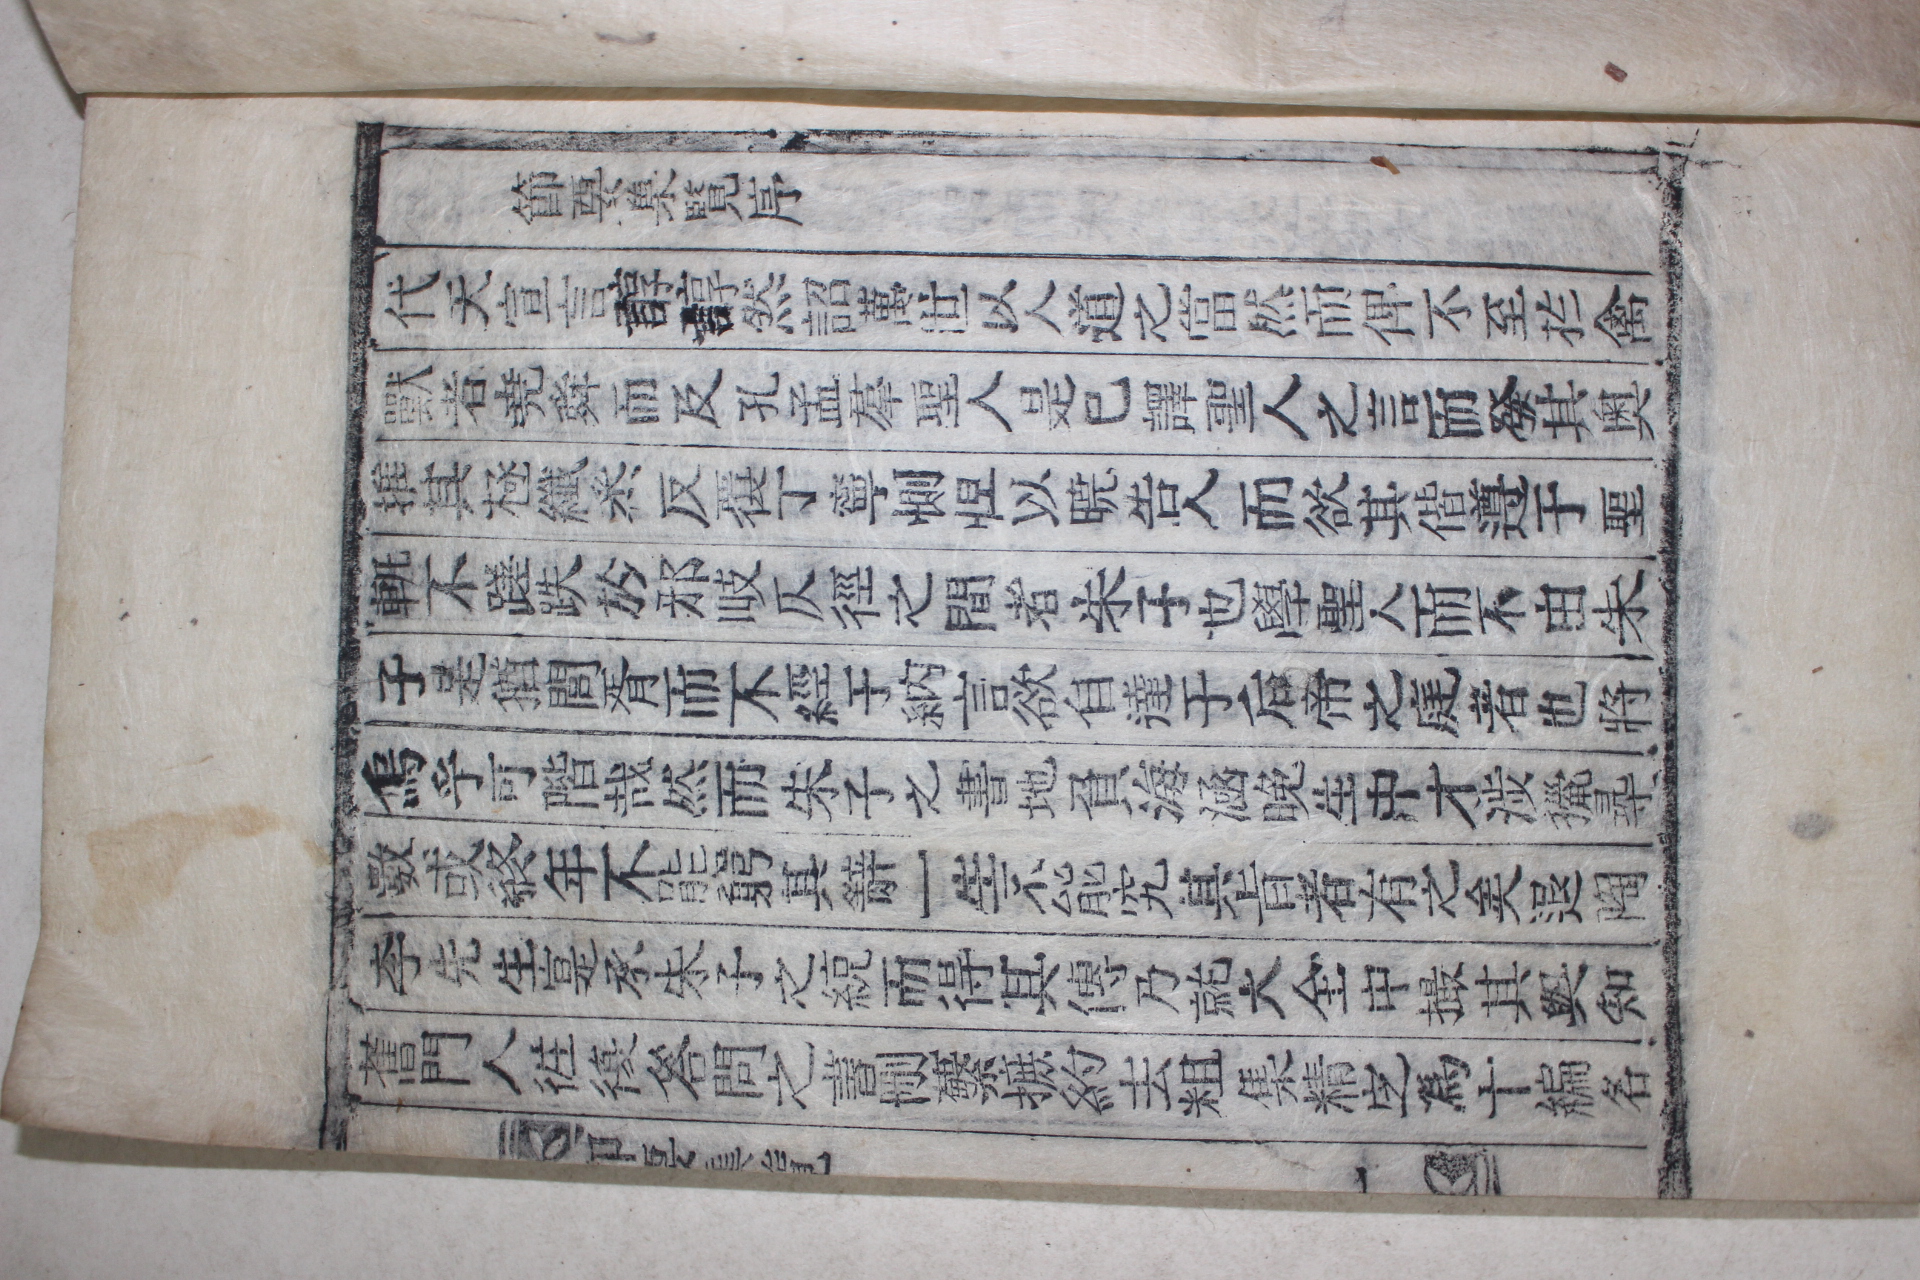 節要集覽序
代天宣言諄諄然詔萬世以人道之當然而俾不至扵禽
獸者堯舜而及孔孟羣聖人是已譯聖人之言而發其奧
推其極纖悉反覆丁寧惻怛以曉告人而欲其偕遵于聖
軌不蹉跌於邪岐仄徑之間者朱子也學聖人而不由朱
子是猶閽胥而不經于納言欲自達于后帝之庭者也將
烏乎可階哉然而朱子之書地負海涵晚生中才涉獵尋
數或終年不能窮其辭一生不能究其旨者有之矣退陶
李先生寔承朱子之統而得其傳乃就大全中撮其與知
舊門人往復答問之書刪蘩摭約去粗集精定爲十編名
節要集覽
一